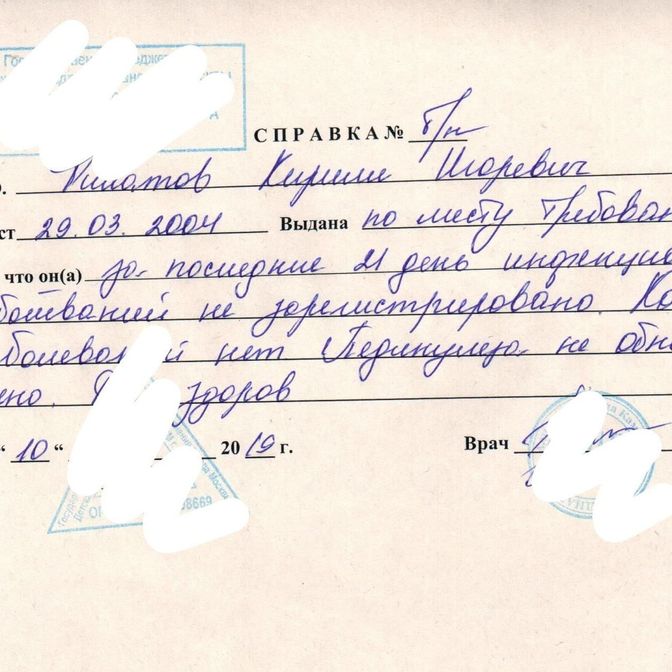 СПРАВКА № б/н
Филатов Кирилл Игоревич
ст 29.03.2004 Выдана по месту требован
что он(а) за последние 21 день инфекцио
болеваний не зарегистрировано. Ко
болеваний нет Педикулез не обна
ено. здоров
"10" 2019 г. Врач
8669